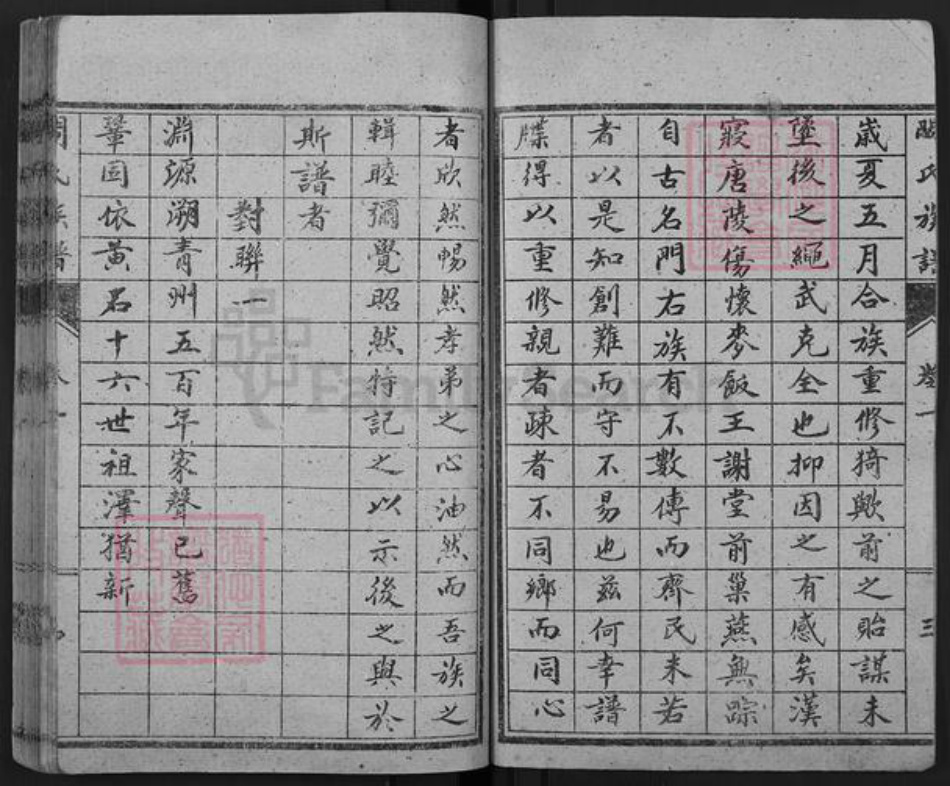 歲夏五月合族重修猗歟前之貽謀未
墜後之繩武克全也抑因之有感矣漢
寢唐陵傷懷麥飯王謝堂前巢燕無踪
自古名門右族有不數傳而齊民未若
者以是知創難而守不易也茲何幸譜
牒得以重修親者疎者不同鄉而同心
者欣然暢然孝弟之心油然而吾族之
輯睦彌覺昭然特記之以示後之與於
斯譜者
對聯一
淵源溯青州五百年家聲已舊
鞏固依黃石十六世祖澤猶新
氏族譜
卷一
三
FamilySearch